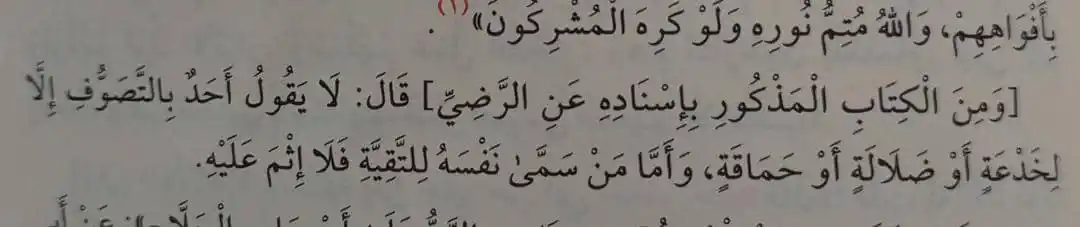 بِأَفْوَاهِهِمْ، وَاللهُ مُتِمُّ نُورِهِ وَلَوْ كَرِهَ الْمُشْرِكُونَ»⁽¹⁾.
[وَمِنَ الْكِتَابِ الْمَذْكُورِ بِإِسْنَادِهِ عَنِ الرَّضِيِّ] قَالَ: لَا يَقُولُ أَحَدٌ بِالتَّصَوُّفِ إِلَّا
لِخَدْعَةٍ أَوْ ضَلَالَةٍ أَوْ حَمَاقَةٍ، وَأَمَّا مَنْ سَمَّىٰ نَفْسَهُ لِلتَّقِيَّةِ فَلَا إِثْمَ عَلَيْهِ.